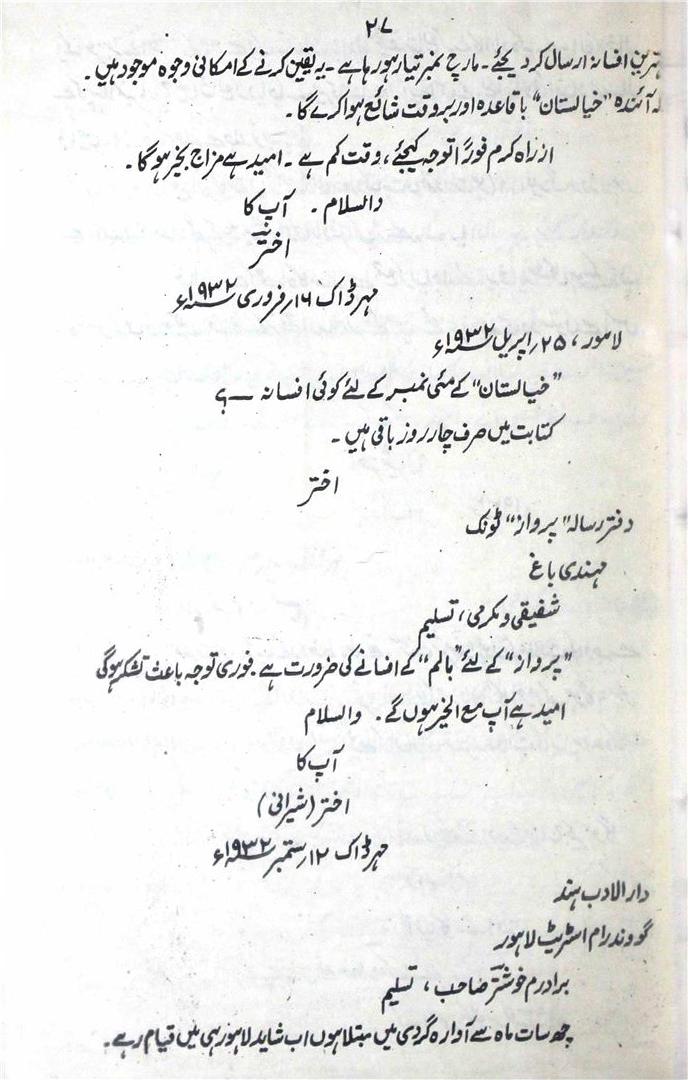 ۲۷
بہترین افسانہ ارسال کر دیجئے۔ مارچ نمبر تیار ہو رہا ہے۔ یہ یقین کرنے کے امکانی وجوہ موجود ہیں۔
کہ آئندہ "خیالستان" باقاعدہ اور بروقت شائع ہوا کرے گا۔
از راہ کرم فوراً توجہ کیجئے، وقت کم ہے۔ امید ہے مزاج بخیر ہوگا۔
والسلام۔ آپ کا
اختر
مہر ڈاک ۱۶؍ فروری ۱۹۳۲ء
لاہور، ۲۵؍ اپریل ۱۹۳۲ء
"خیالستان" کے مئی نمبر کے لئے کوئی افسانہ ــ؟
کتابت میں صرف چار روز باقی ہیں۔
اختر
دفتر رسالہ "پرواز" ٹونک
مہندی باغ
شفیقی و مکرمی، تسلیم
"پرواز" کے لئے "بالم" کے افسانے کی ضرورت ہے۔ فوری توجہ باعث تشکر ہوگی
امید ہے آپ مع الخیر ہوں گے۔ والسلام
آپ کا
اختر (شیرانی)
مہر ڈاک ۱۲؍ ستمبر ۱۹۳۲ء
دار الادب ہند
گووند رام اسٹریٹ لاہور
برادرم خوشتر صاحب، تسلیم
چھ سات ماہ سے آوارہ گردی میں مبتلا ہوں اب شاید لاہور ہی میں قیام رہے۔